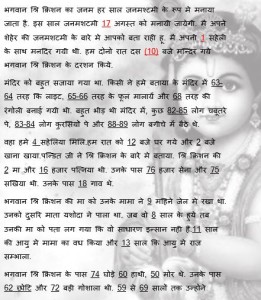 भगवान श्रि क्रिशन का जनम हर साल जनमशटमी के रूप मे मनाया
जाता है. इस साल जनमशटमी 17 अगसत को मनायी जायेगी. मै अपने
शेहेर की जनमशटमी के बारे मे आपको बता राही हू. मै अपनी 1 सहेली
के साथ मनदिर गयी थी. हम दोनो रात दस (10) बजे मनदिर गये
भगवान श्रि क्रिशन के दरशन किये.
मंदिर को बहुत सजाया गया था. किसी ने हमे बताया के मंदिर मे 63-
64 तरह कि लाइट, 65-66 तरह के फूल मालायें और 68 तरह की
रेंगोली बनाई गयी थी. बहुत भीड़ थी मंदिर मे, कुछ 82-85 लोग चबूतरे
पे, 83-84 लोग कुरसियों पे और 88-89 लोग बगीचे में बैठे थे.
वहा हमे 4 सहेलिया मिलि.हम रात को 12 बजे घर गये और 2 बजे
खाना खाया.पन्डित जी ने श्रि क्रिशन के बारे मे बताया. श्रि क्रिशन की
2 मा और 16 हजार पत्निया थी. उनके पास 76 हजार सेना और 75
सखिया थी. उनके पास 18 गाव थे.
भगवान श्रि क्रिशन की मा को उनके मामा ने 9 महिने जेल मे रखा था.
उनको दुसरि माता यशोदा ने पाला था. जब वो 8 साल के हुये तब
उनकी मा को पता लग गया कि वो साधारण इन्सान नही है.11 साल
की आयु मे मामा का वध किया और 13 साल कि आयु मे राज
सम्भाला.
भगवान श्रि क्रिशन के पास 74 घोड़े 60 हाथी, 50 मोर थे. उनके पास
62 छोटि और 72 बड़ी गोशाला थी. 59 से 69 सालो तक उन्होने